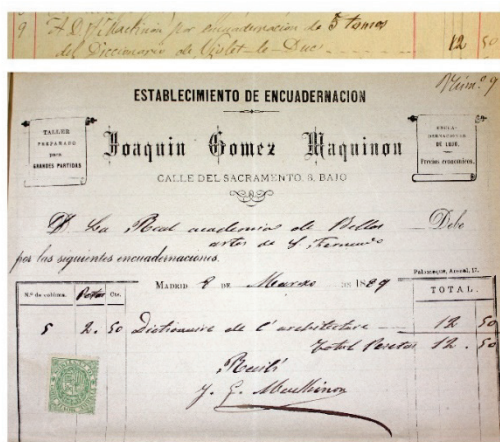 9 A D. J. Machinon por encuadernacion de 5 tomos
del Diccionario de Violet-le-Duc 12 50
Núm.º 9
ESTABLECIMIENTO DE ENCUADERNACION
TALLER
PREPARADO
para
GRANDES PARTIDAS
Joaquin Gomez Maquinon
DE LUJO.
Precios económicos.
CALLE DEL SACRAMENTO, 8, BAJO
La Real academia de Bellas Debe
artes de S. Fernando
por las siguientes encuadernaciones.
MADRID 2 DE Marzo DE 1889
Palomeque, Arenal, 17.
N.º de volúms. Pesetas Cts. TOTAL.
5 2. 50 Dictionaire de l'architecture 12 50
Total Pesetas 12. 50
Recibí
J. G.